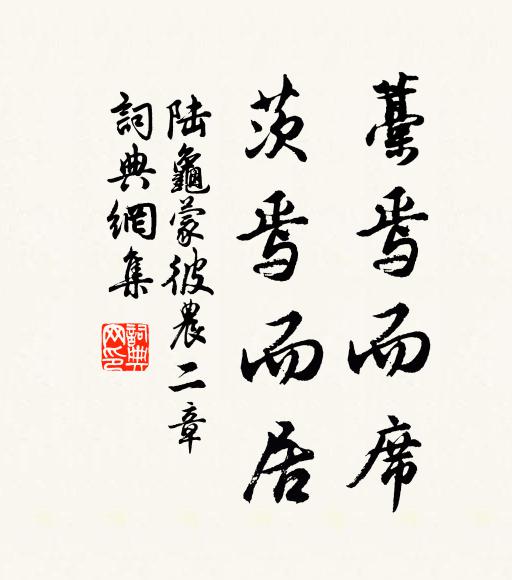 藁焉而席
茨焉而居
陆龜蒙彼農二章
詞典網集
詞典网印